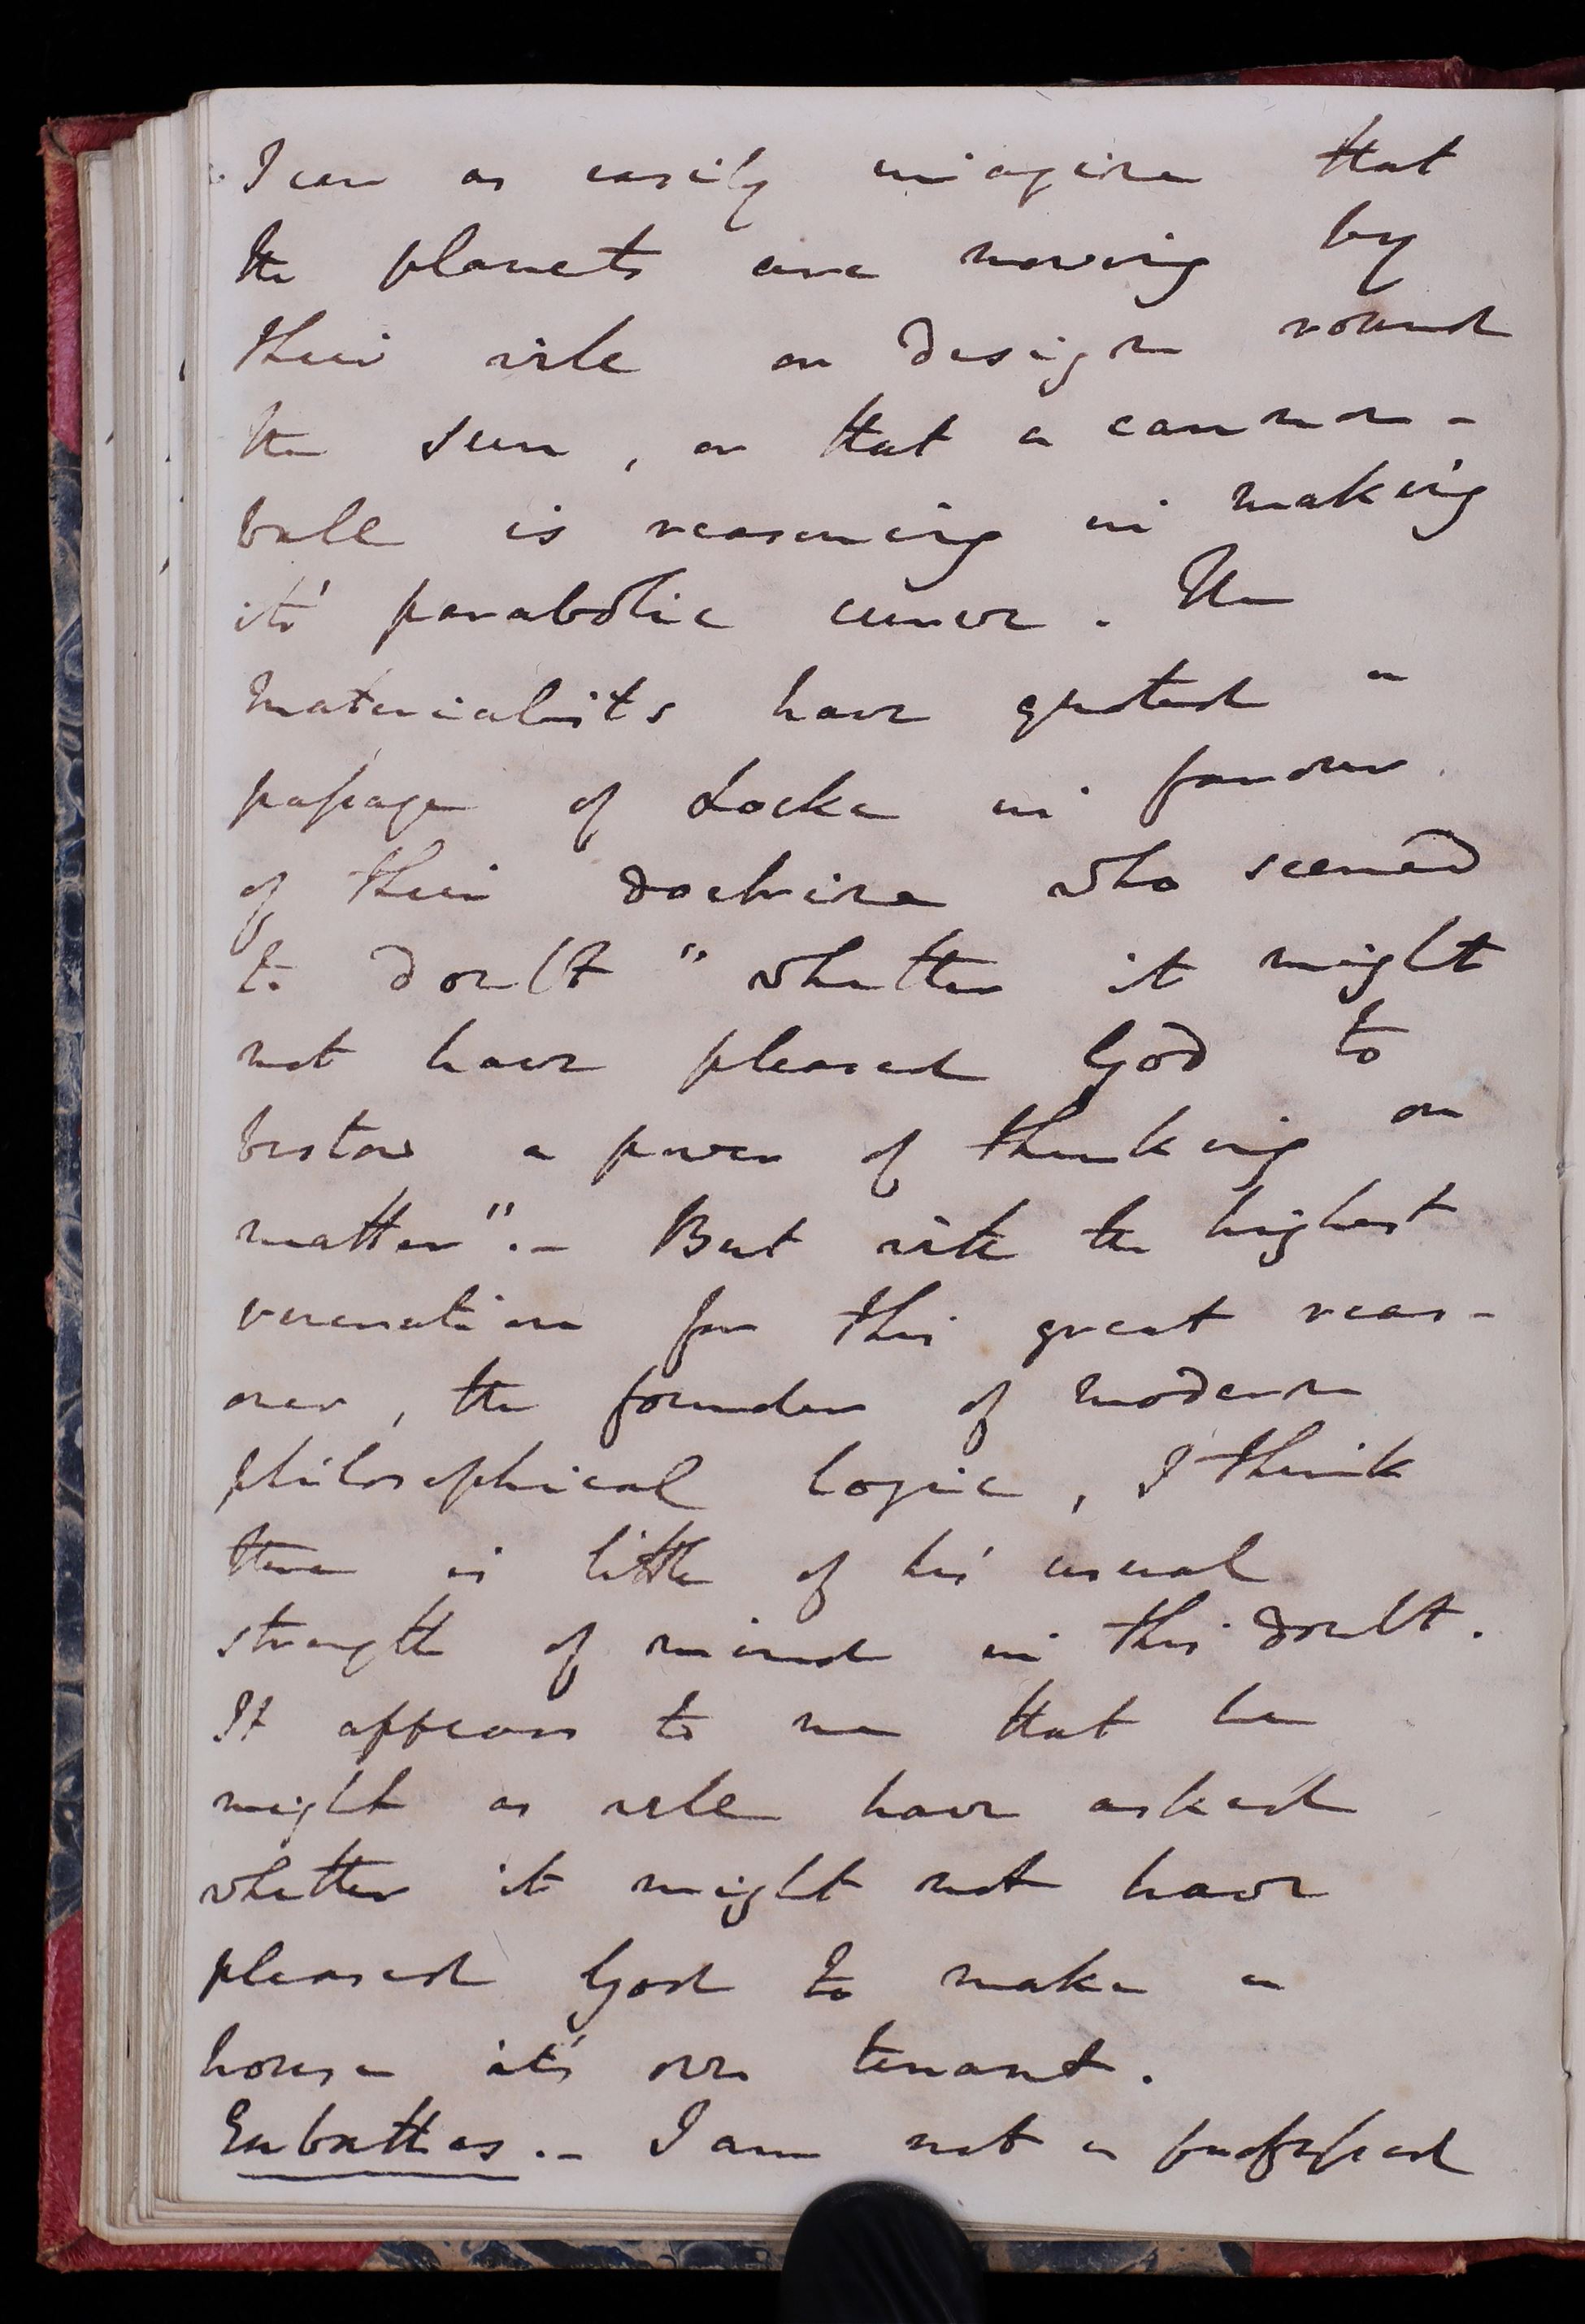 I can as easily imagine that
the planets are moving by
their will or design round
the sun, or that a cannon-
ball is reasoning in making
it's parabolic curve. The
materialists have quoted a
passage of Locke in favour
of their doctrine who seemed
to doubt "whether it might
not have pleased God to
bestow a power of thinking on
matter".- But with the highest
veneration for this great reas-
oner, the founder of modern
philosophical logic, I think
there is little of his usual
strength of mind in this doubt.
It appears to me that he
might as well have asked
whether it might not have
pleased God to make a
house it's own tenant.
Eubathes.- I am not a professed